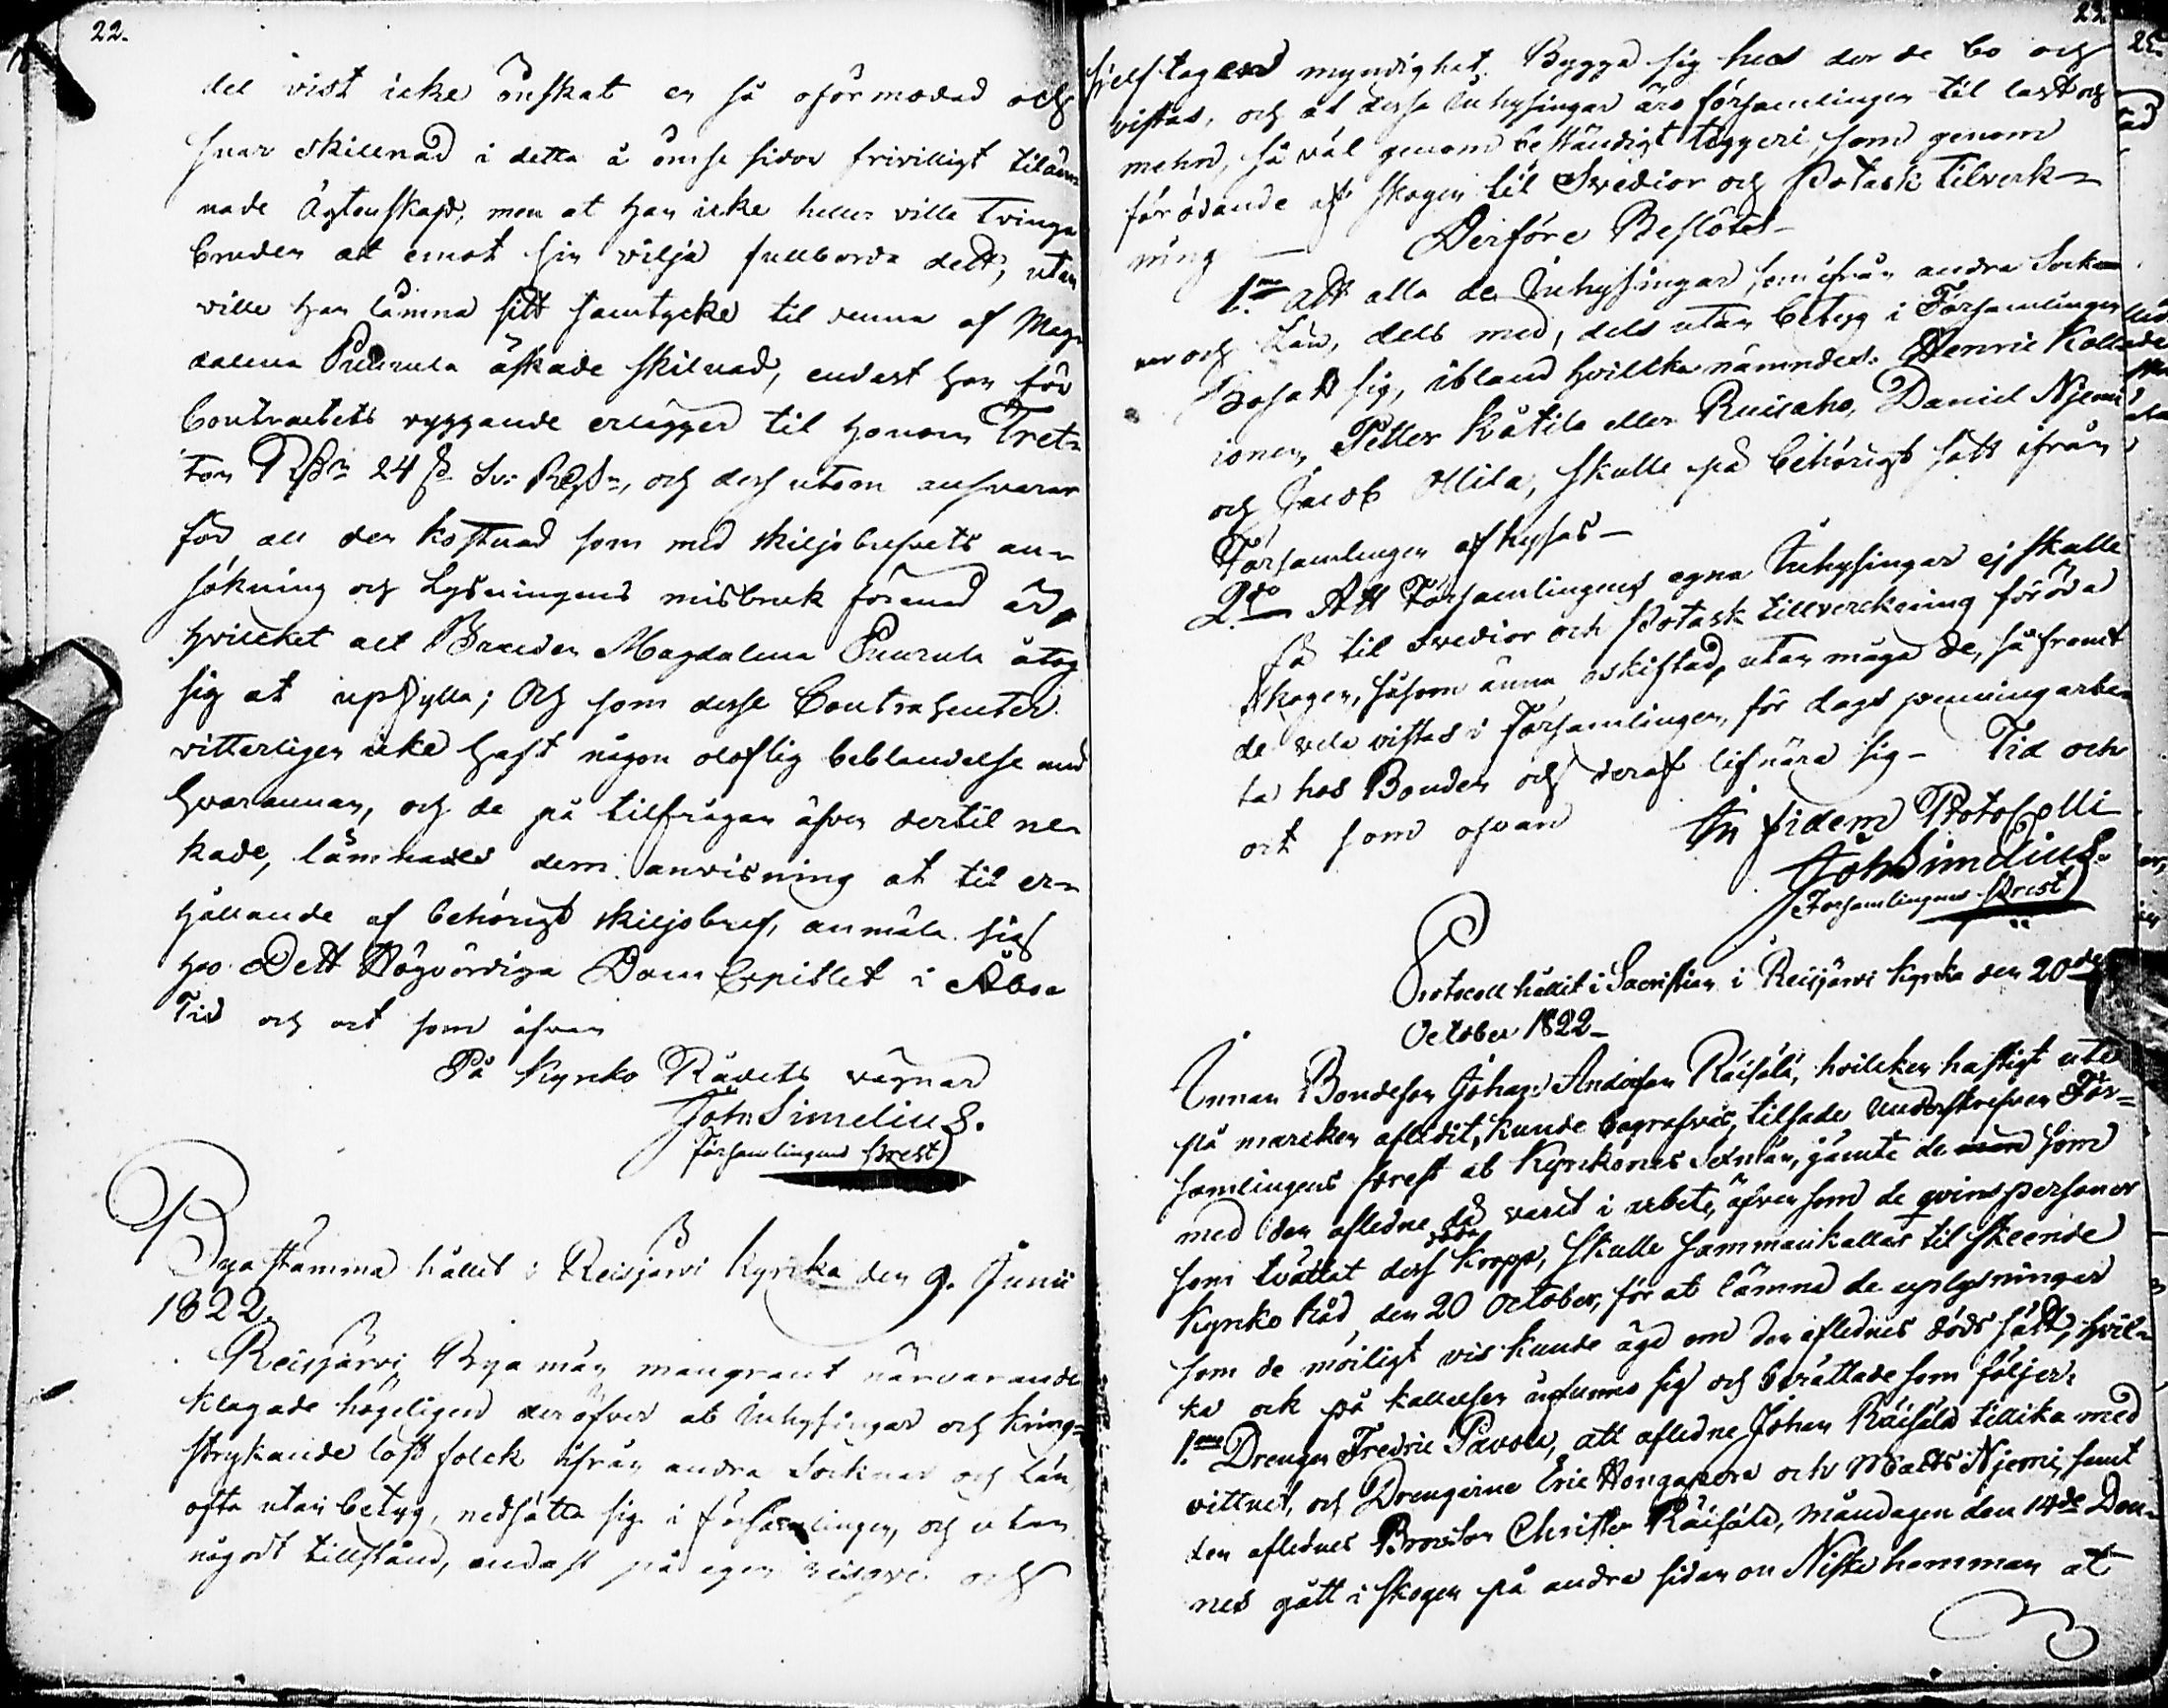 22.
det vist icke önskat en så oförmodad och
snar skillnad i detta å ömse sidor frivilligt tiläm-
nade Ägtenskap, men at han icke heller ville tvinga
bruden at emot sin vilja fullborda dett, utan
ville han lämna sitt samtycke til denna af Mag-
dalena Puurula äskade skilnad, endast hon för
Contractets ryggande erlägger til honom Tret-
ton Rd 24 s Sv: Rg, och dess utom ansvarar
för all den kostnad som med skiljobrefvets an-
sökning och Lysningens misbruk förenad är,
hvilcket alt Bruden Magdalena Puurula åtog
sig at upfylla; Och som desse Contrahenter
vitterligen icke haft någon oloflig beblandelse med
hvarannan, och de på tilfrågan äfven dertil ne-
kade, lämnades dem anvisning at til er-
hållande af behörigt skiljobref, anmäla sig
hos Dett Högvördiga Dom Capitlet i Åbo
Tid och ort som ofvan
På Kyrko Rådets vägnar
Joh Simelius.
Församlingens Prest
Bya stämma hållit i Reisjärvi Kyrcka den 9. Junii
1822.
Reisjärvi Bya män mangrant närvarande
klagade högeligen deröfver at Inhysingar och kring-
strykande löst folck ifrån andra Socknar och Län
ofta utan betyg, nedsätta sig i församlingen, och utan
någodt tillstånd, endast på egen och
22
sielftagen myndighet. Bygga sig hus der de bo och
vistas, och at desse Inhysingar äro församlingen til last och
mehn, så väl genom beständigt tiggeri, som genom
förödande af skogen til Svedior och Potask tilverk-
ning — Derföre Beslöts —
1.mo Att alla de Inhysingar som ifrån andra Sock-
nar och Län, dels med, dels utan betyg i Församlingen
Bosatt sig, ibland hvillka nämndes: Henric Kolla-
ionen, Petter Kätilä eller Ruisaho, Daniel Njemi
och Jacob Ollila, skulle på behörigt sätt ifrån
Församlingen afhysas —
2.do Att Församlingens egna Inhysingar ej skulle
få til Svedior och Potask tillverckning föröda
skogen, såsom ännu oskiftad, utan måga de, så framt
de vela vistas i Församlingen, för dags penning arbe-
ta hos Bonden och deraf lifnära sig — Tid och
ort som ofvan In fidem Protocolli
Joh Simelius.
Församlingens Prest
Protocoll hållit i Sacristian i Reisjärvi Kyrcka den 20de
October 1822 —
Innan Bondeson Johan Andersson Räisälä, hvilcken hastigt ute
på marcken afledit, kunde begrafvis, tilsade Underskrefven För-
samlingens Prest at Kyrkones Sexmän, jämte de som
med den afledne då varit i arbete, äfven som de qvinspersoner
som tvättat dess döda kropp, skulle sammankallas til skeende
Kyrko Råd den 20 October, för at lämna de uplysningar
som de möiligt vis kunde äga om den aflednes döds sätt, hvil-
ka ock på kallelsen infunno sig och berättade som följer:
1.mo Drengen Fredric Pavola, att aflidne Johan Räisälä tillika med
vittnet, och Drengarne Eric Hongaperä och Matts Njemi, samt
den aflednes Broder Christer Räisälä, måndagen den 14de Den-
nes gått i skogen på andra sidan om Niska hemman at